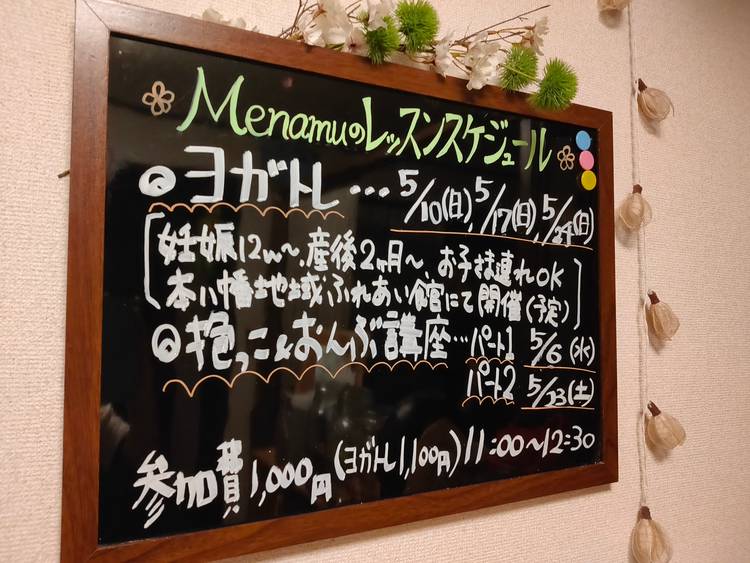 Menamuのレッスンスケジュール
ヨガトレ…5/10(日),5/17(日),5/24(日)
[妊娠12w〜、産後2ヶ月〜、お子さま連れOK
本八幡地域ふれあい館にて開催(予定)]
抱っこ&おんぶ講座…パート1 5/6(水)
パート2 5/23(土)
参加費1,000円(ヨガトレ1,100円)11:00〜12:30